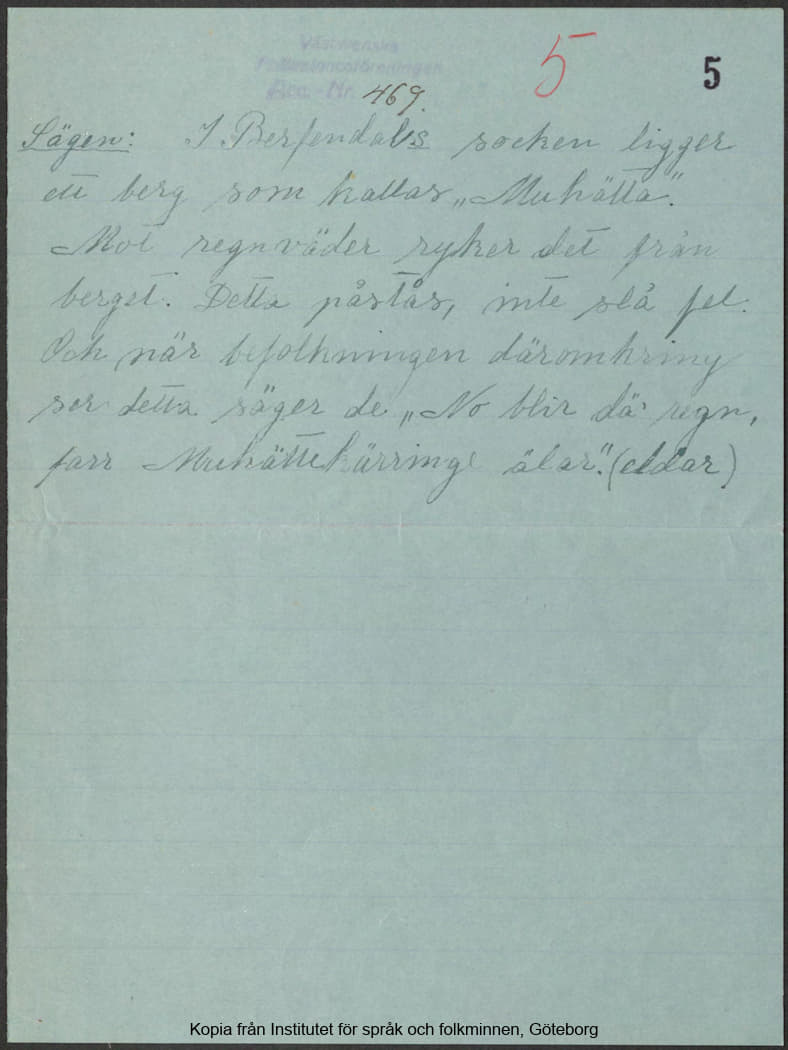 Västsvenska
Folkminnesföreningen
Acc. Nr. 469.
5
5
Sägen: I Berfendals socken ligger
ett berg som kallas „Muhätta".
Mot regnväder ryker det från
berget. Detta påstås, inte slå fel.
Och när befolkningen däromkring
ser detta säger de „No blir dä regn,
farr Muhättekärringi älar". (eldar)
Kopia från Institutet för språk och folkminnen, Göteborg